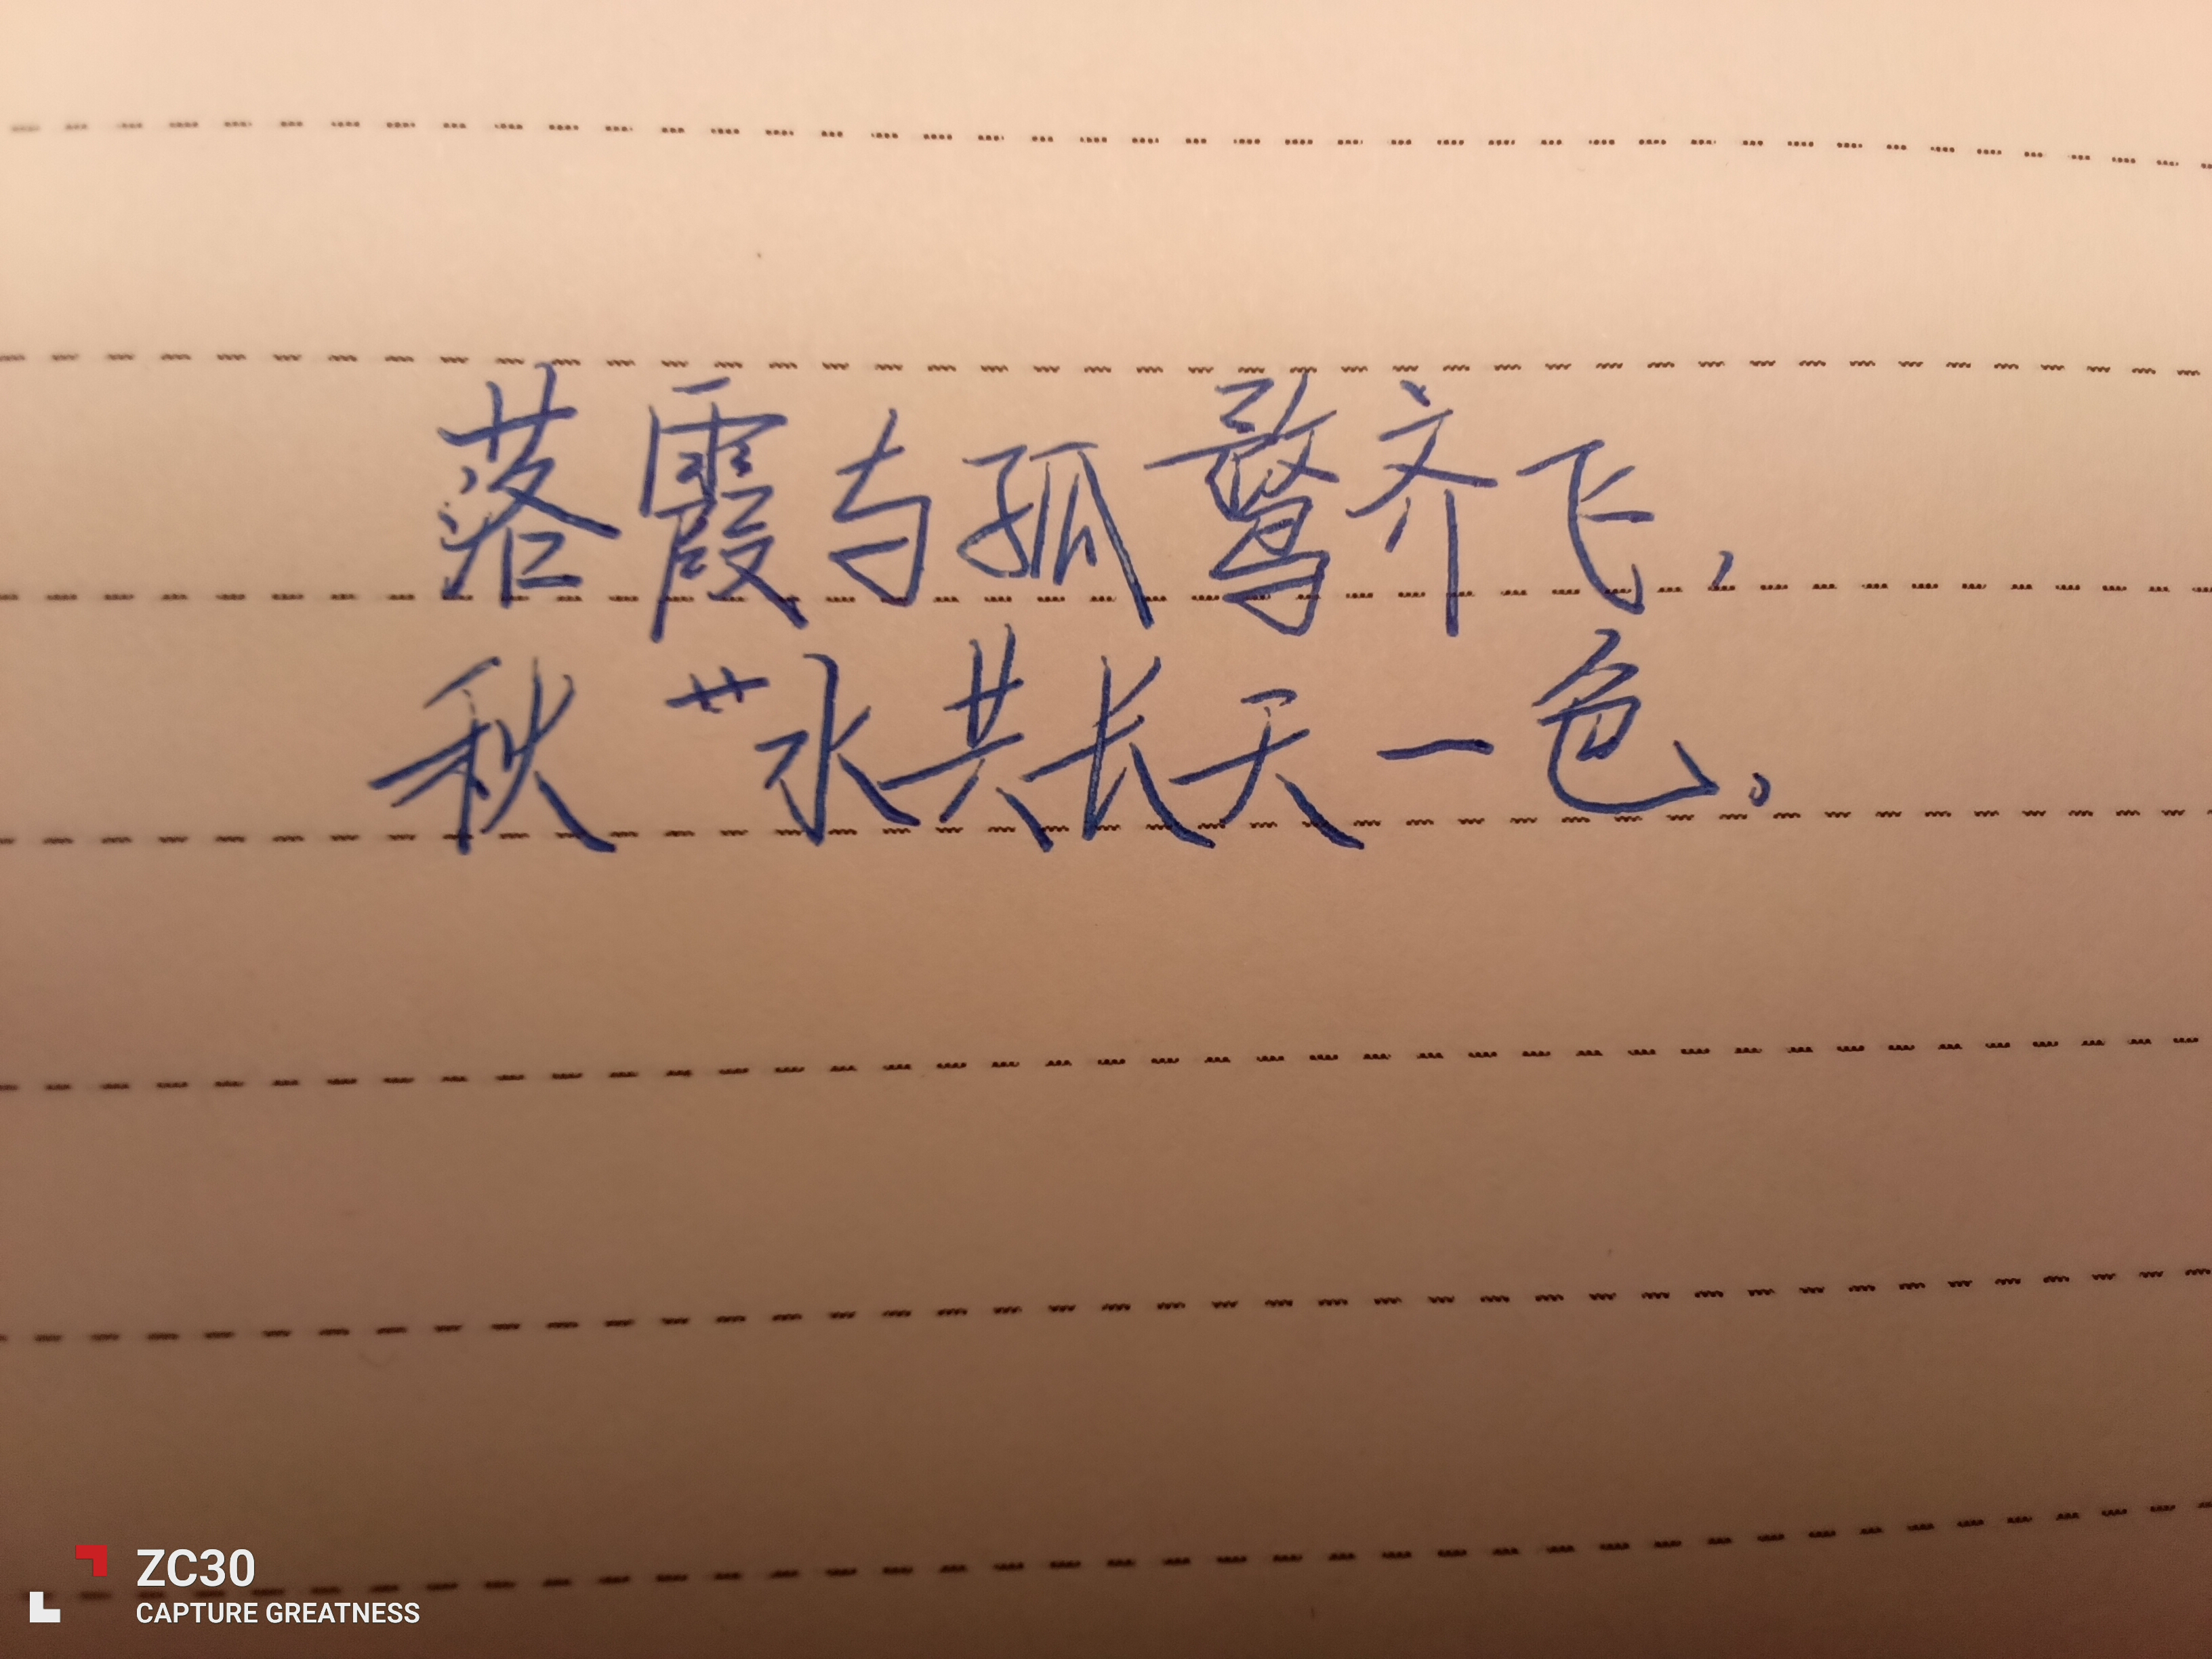 落霞与孤鹜齐飞,
秋艹水共长天一色。
ZC30
CAPTURE GREATNESS